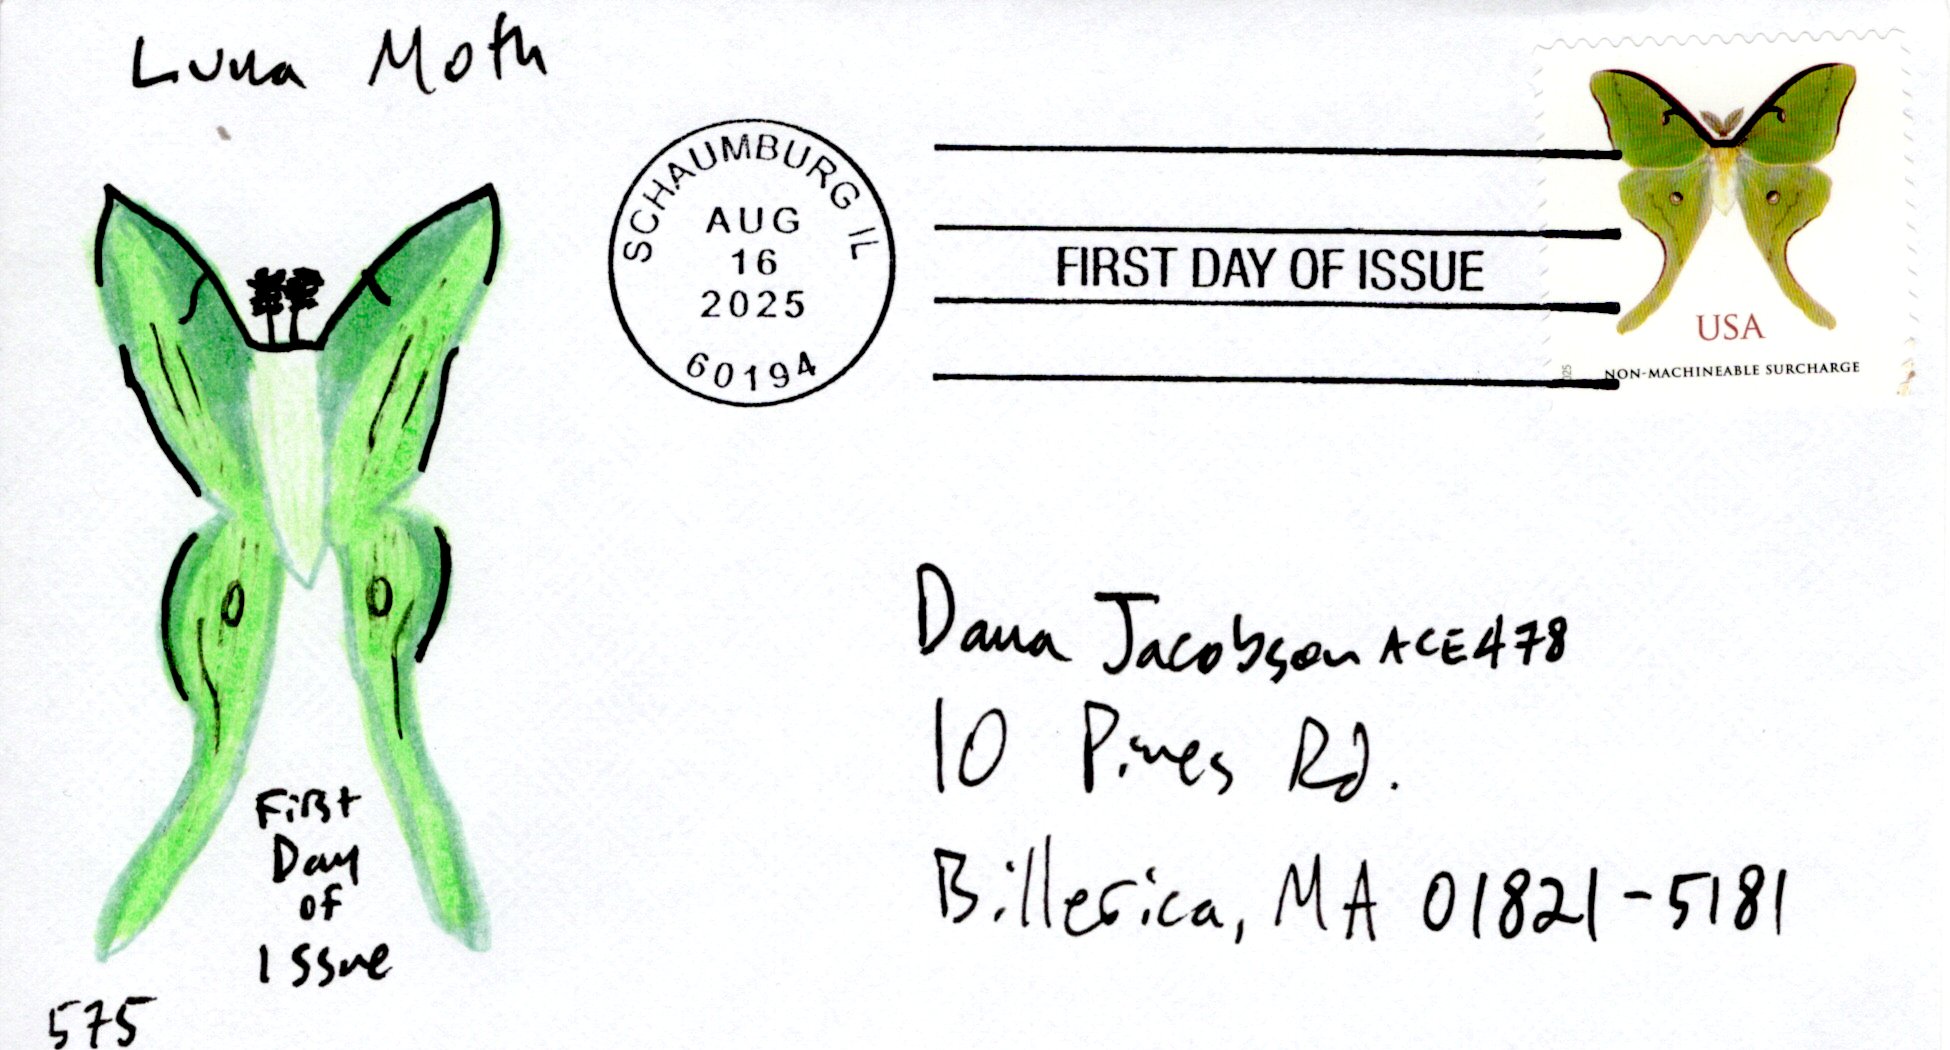 Luna Moth
SCHAUMBURG IL
AUG
16
2025
60194
FIRST DAY OF ISSUE
USA
NON-MACHINEABLE SURCHARGE
2025
Dana Jacobson ACE478
10 Pines Rd.
Billerica, MA 01821-5181
First
Day
of
Issue
575